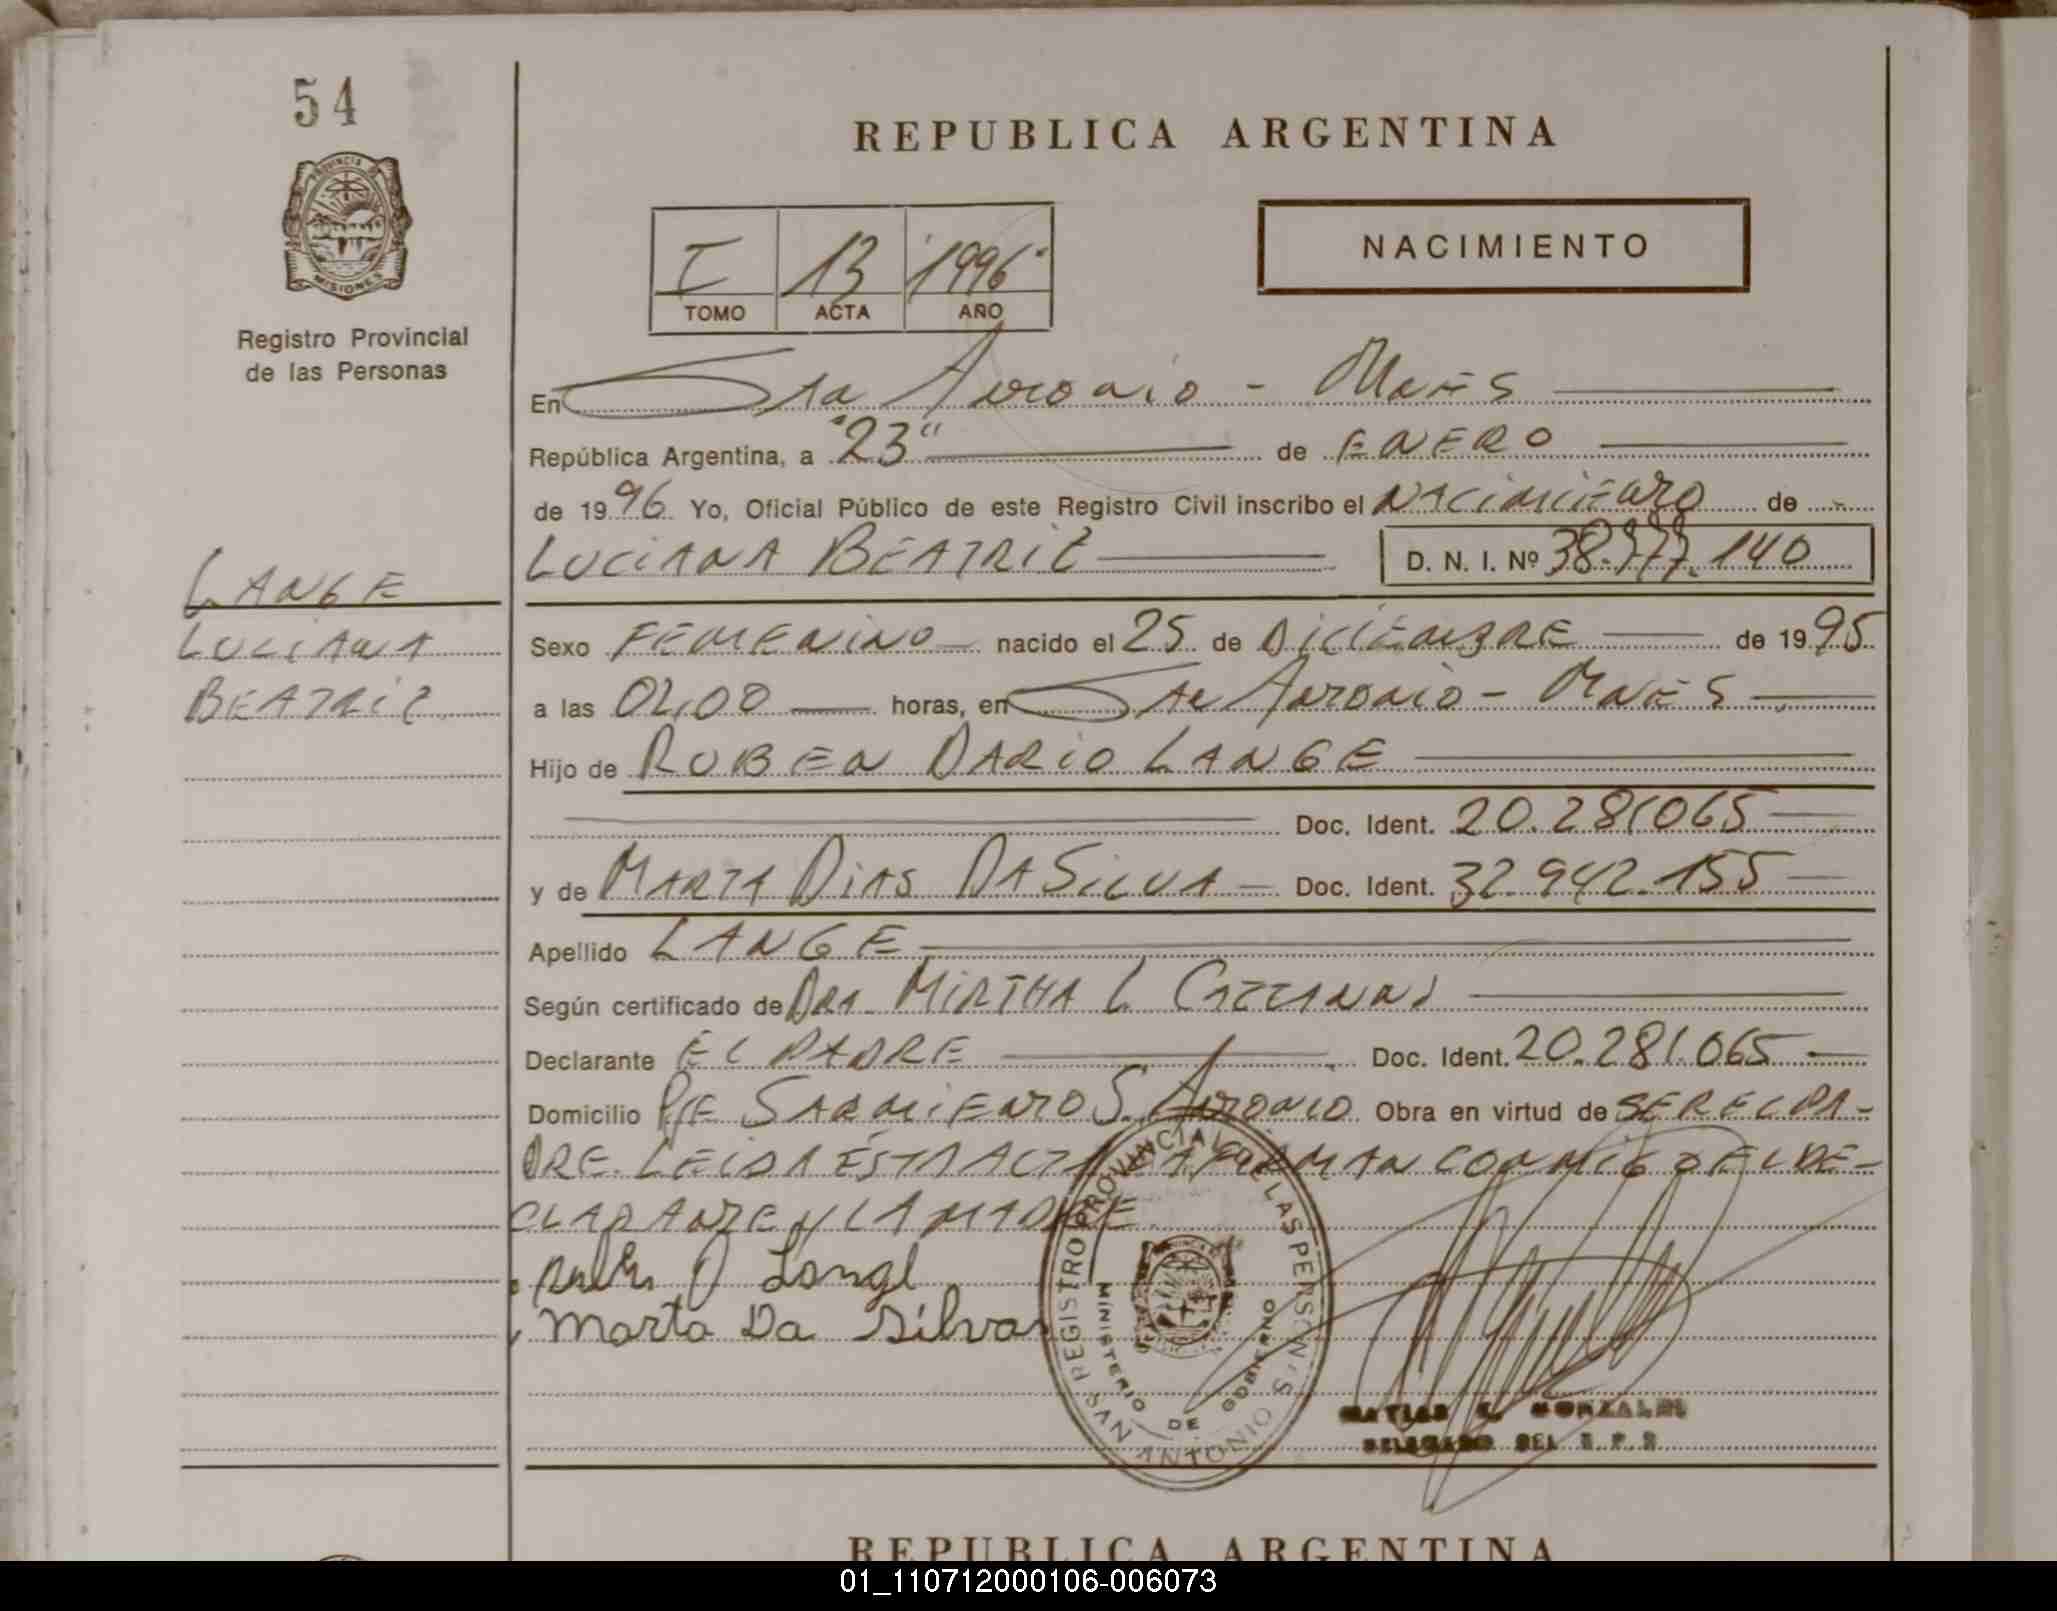 54
PROVINCIA DE
MISIONES
Registro Provincial
de las Personas
REPUBLICA ARGENTINA
I 13 1996
TOMO ACTA AÑO
NACIMIENTO
En San Antonio - Mnes
República Argentina, a "23" de ENERO
de 1996 Yo, Oficial Público de este Registro Civil inscribo el NACIMIENTO de
LUCIANA BEATRIZ D. N. I. Nº 38.777.140
LANGE
LUCIANA
BEATRIZ
Sexo FEMENINO nacido el 25 de DICIEMBRE de 1995
a las 02,00 horas, en San Antonio - Mnes
Hijo de RUBEN DARIO LANGE
Doc. Ident. 20.281065
y de MARTA DIAS DA SILVA Doc. Ident. 32.942.155
Apellido LANGE
Según certificado de DRA. MIRTHA L.
Declarante EL PADRE Doc. Ident. 20.281.065
Domicilio Pje SARMIENTO S. ANTONIO Obra en virtud de SER EL PA-
DRE. LEIDA ESTA ACTA LA FIRMAN CONMIGO EL DE-
CLARANTE Y LA MADRE
Lange
Marta Da Silva
REGISTRO PROVINCIAL DE LAS PERSONAS
MINISTERIO DE GOBIERNO
SAN ANTONIO
DELEGADO DEL R. P. P.
REPUBLICA ARGENTINA
01_110712000106-006073